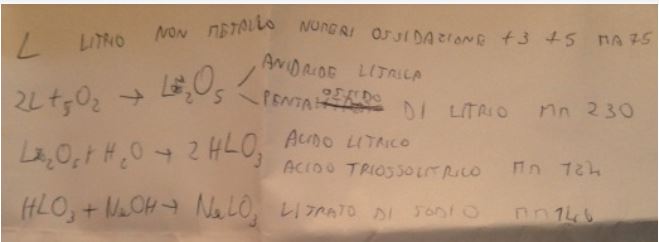 L LITRIO NON METALLO NUMERI OSSIDAZIONE +3 +5 MA 75
ANIDRIDE LITRICA
2L + 5O2 → L2O5
PENTAOSSIDO DI LITRIO MM 230
L2O5 + H2O → 2 HLO3
ACIDO LITRICO
ACIDO TRIOSSOLITRICO MM 124
HLO3 + NaOH → NaLO3 LITRATO DI SODIO MM 146